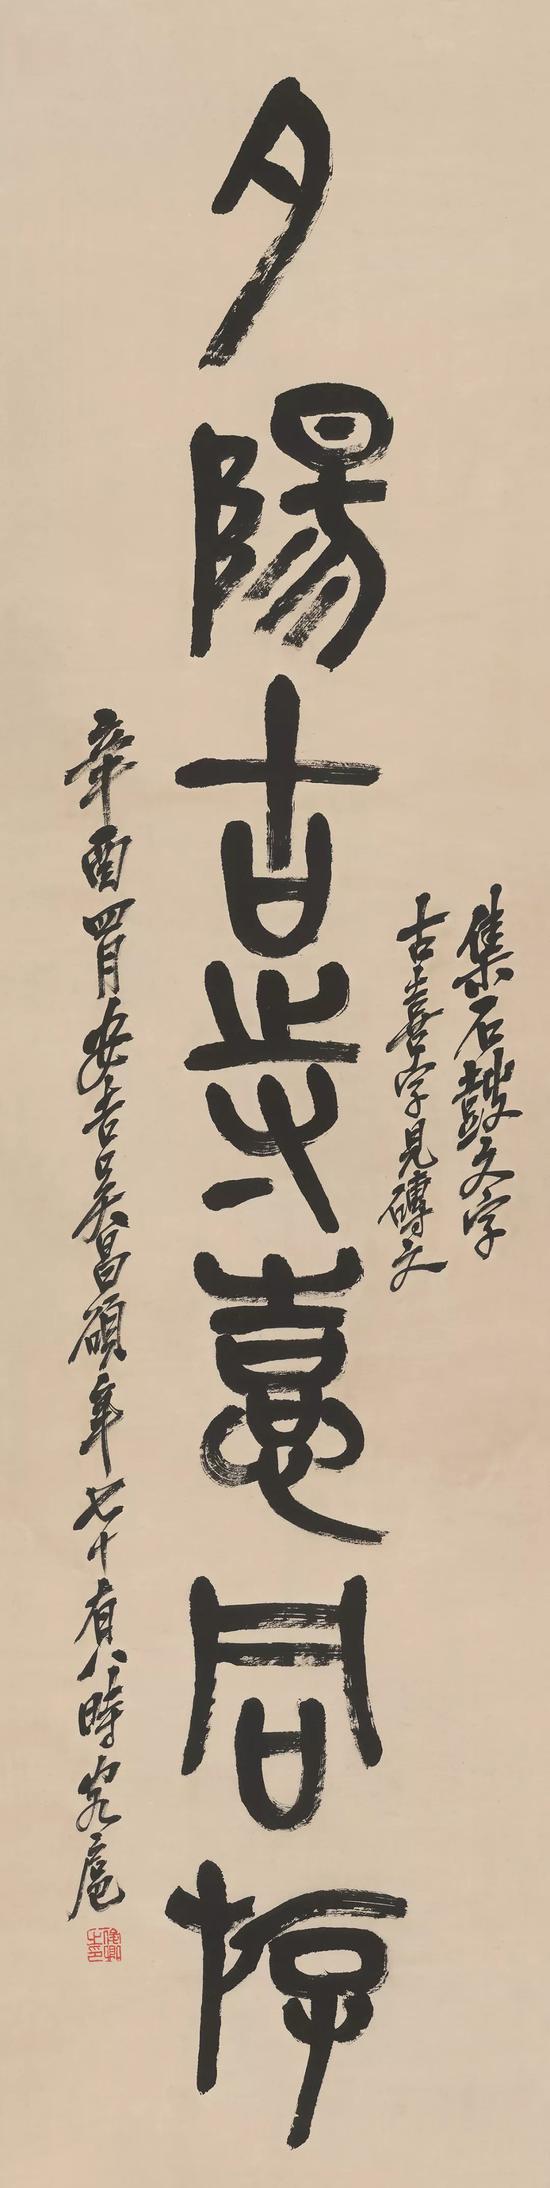 集石鼓文字
古喜字見磚文
夕陽古步憙同斿
辛酉四月安吉吳昌碩年七十有八時客扈
俊卿之印